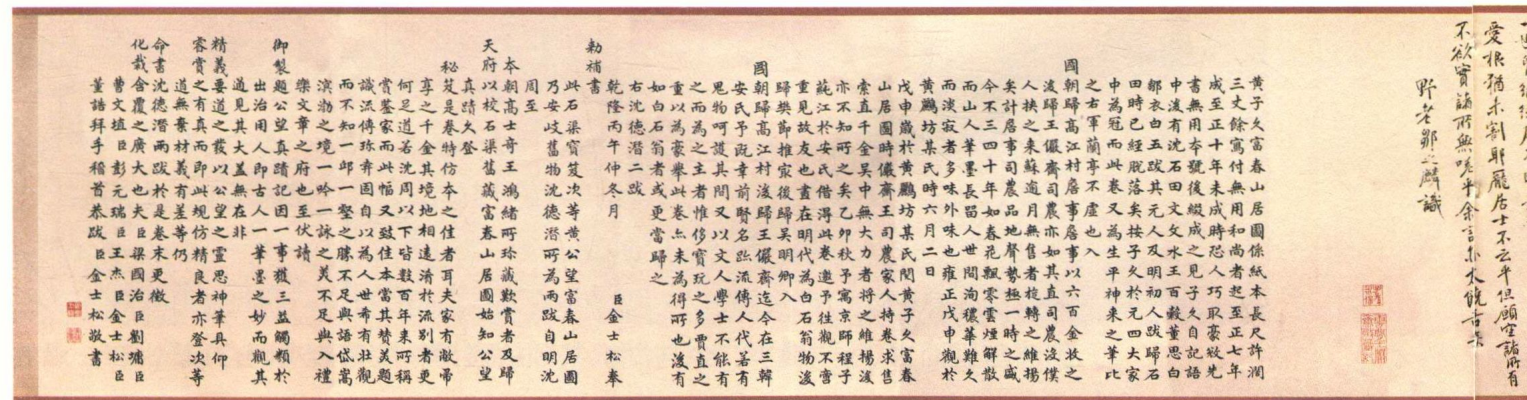 愛根猶未割耶龐居士不云乎但願空諸所有
不欲實諸所無嗟乎余言亦太饒舌矣
野老鄒之麟識
黃子久富春山居圖係紙本長尺許濶
三丈餘寫付無用和尚者起至正七年
成至正十年未成時恐人巧取豪敚先
書無用本號後綴成之見子久自記語
中後有沈石田文文水王百榖董思白
鄒衣白五跋其元人及明初人跋歸石
田時已經脫落矣按子久於元四大家
中為冠而此卷又為生平神来之筆比
之右軍蘭亭不虛也入
國朝歸高江村居事居事以六百金收之
後歸王儼齋司農亦如其直司農沒僕
人挾之来蘇逾月無售者旋轉之維揚
矣計居事司農品地聲勢極一時之盛
今不三四十年如春花飄零雲煙解散
而山人筆墨長留人世間洵穠華難久
而淡寂者多味外味也雍正戊申觀於
黃鸝坊某氏時六月二日
戊申歲於黃鸝坊某氏閱黃子久富春
山居圖時儼齋王司農家人持卷求售
索直千金吴中無大力者將之維揚後
亦不知所之矣乙卯秋予寓京師程子
蓺江於安氏借得此卷邀予往觀不啻
重見故友也畫在明代為白石翁物後
歸樊節推家後歸吴明卿入
國朝歸高江村後歸王儼齋迄今在三韓
安氏予既幸前賢名跡流傳人代若有
鬼物呵護其間又以文人學士不能有
之而為之主者惟侈寶玩之多賈直之
重以為豪舉此卷亦未為得所也後有
如白石翁者或更當歸之
右沈德潛二跋
乾隆丙午仲冬月 臣金士松奉
勅補書
此石渠寶笈次等黃公望富春山居圖
乃安岐舊物沈德潛所為兩跋自明沈
周至
本朝高士奇王鴻緒所珎藏歎賞者及歸
天府以校石渠舊藏富春山居圖始知公望
真蹟久登
秘笈是卷特仿本之佳者耳夫家有敝帚
享之千金其境地相遠淆於流别者更
何足道若沈周以下皆數百年来所稱
賞鑒家而此幅又本當其贊美題
識流傳珎弆固自以為人世希有壯觀
而不知一邱一壑之勝不足與語岱嵩
溟渤之境一吟一詠之美不足與入禮
樂文章之府也至伏讀
御製題公望真蹟記因一事獲三益觸類於
出治用人即古人一筆墨之妙而觀其
道見其大蓋無在非
精義要道之以公望之靈思神筆具仰
睿賞之有真而即此规仿精良者亦登次等
道無棄材義有差等仍
命書沈德潛兩跋於是卷末更徵
化裁含覆之廣大也夫臣梁國治臣劉墉臣
曹文埴臣彭元瑞臣王杰臣金士松臣
董誥拜手稽首恭跋 臣金士松敬書